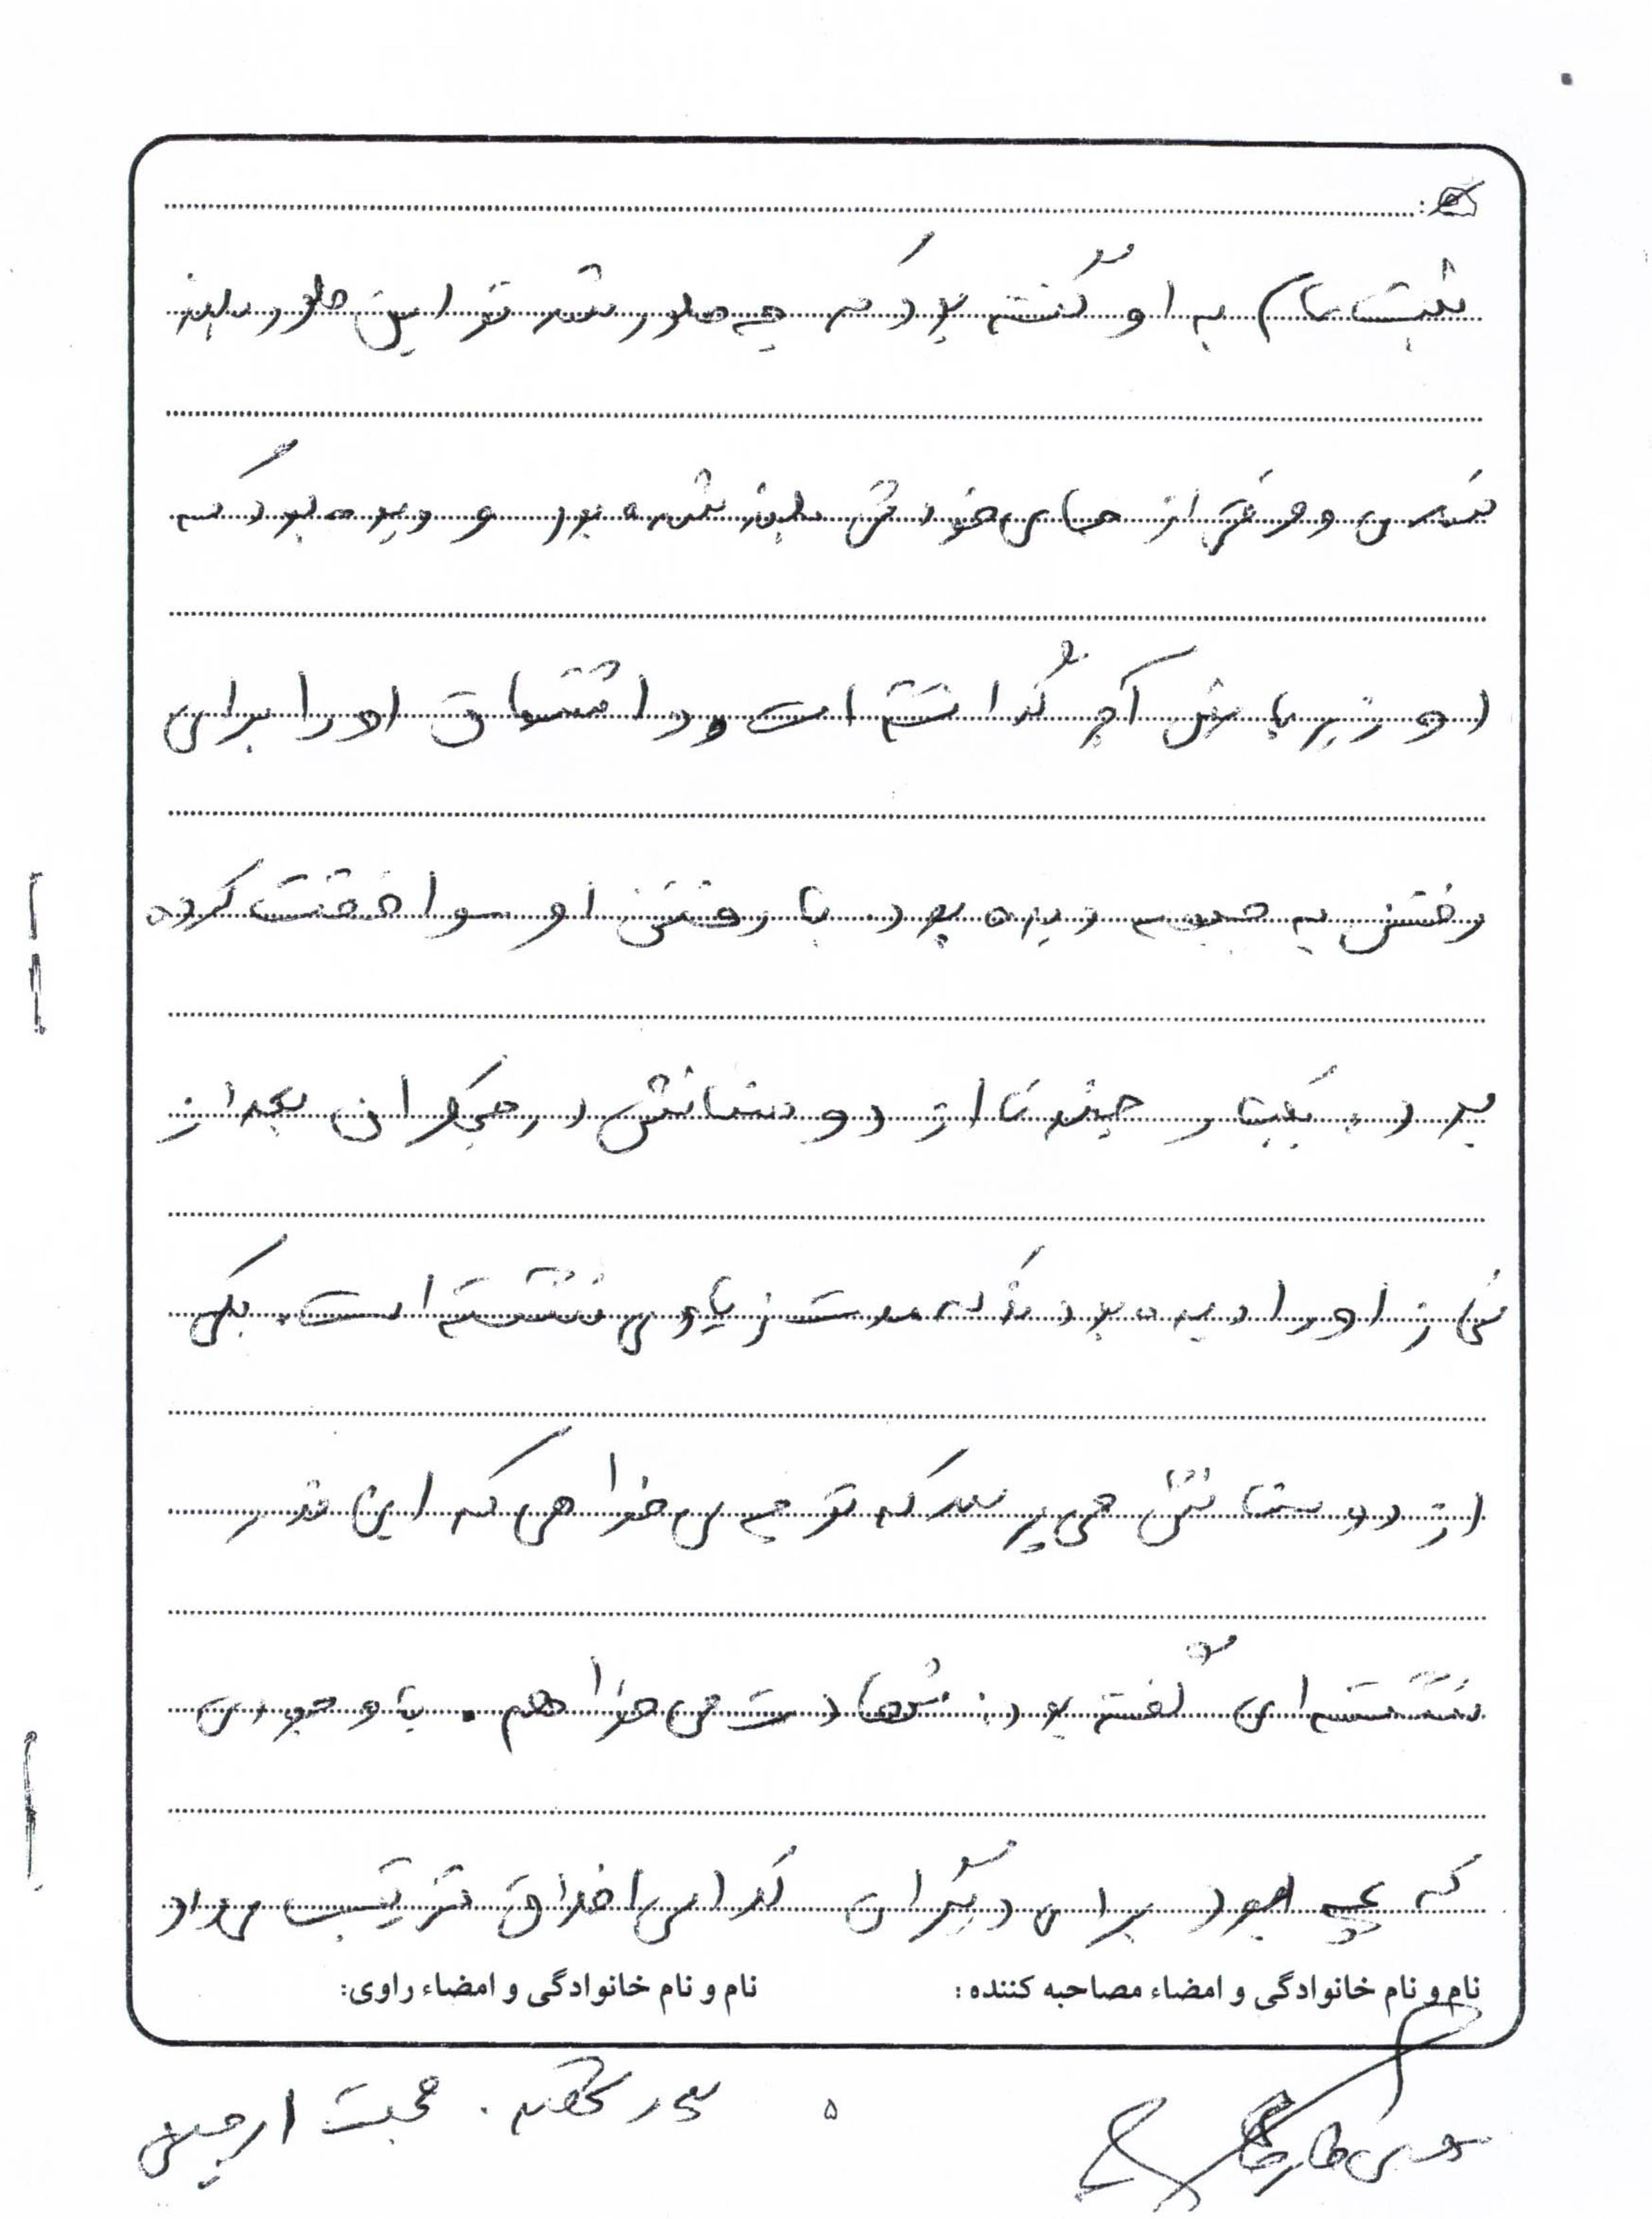 ثبت نام به او گفته بود که چه طور شد تو این طور بلند
شدی و وقتی از جای خودش بلند شده بود و دیده بود که
او زیر پایش آجر گذاشته است و اشتیاق او را برای
رفتن به جبهه دیده بود با رفتن او موافقت کرده
بود. یکبار چند تا از دوستانش در جمکران بعد از
نماز او را دیده بودند که مدت زیادی نشسته است. یکی
از دوستانش می پرسد که تو چه می خواهی که این قدر
نشسته ای گفته بود: شهادت می خواهم. با وجودی
که بچه بود برای دیگران کلاس اخلاق ترتیب می داد
نام و نام خانوادگی و امضاء مصاحبه کننده: نام و نام خانوادگی و امضاء راوی:
۵ محبت